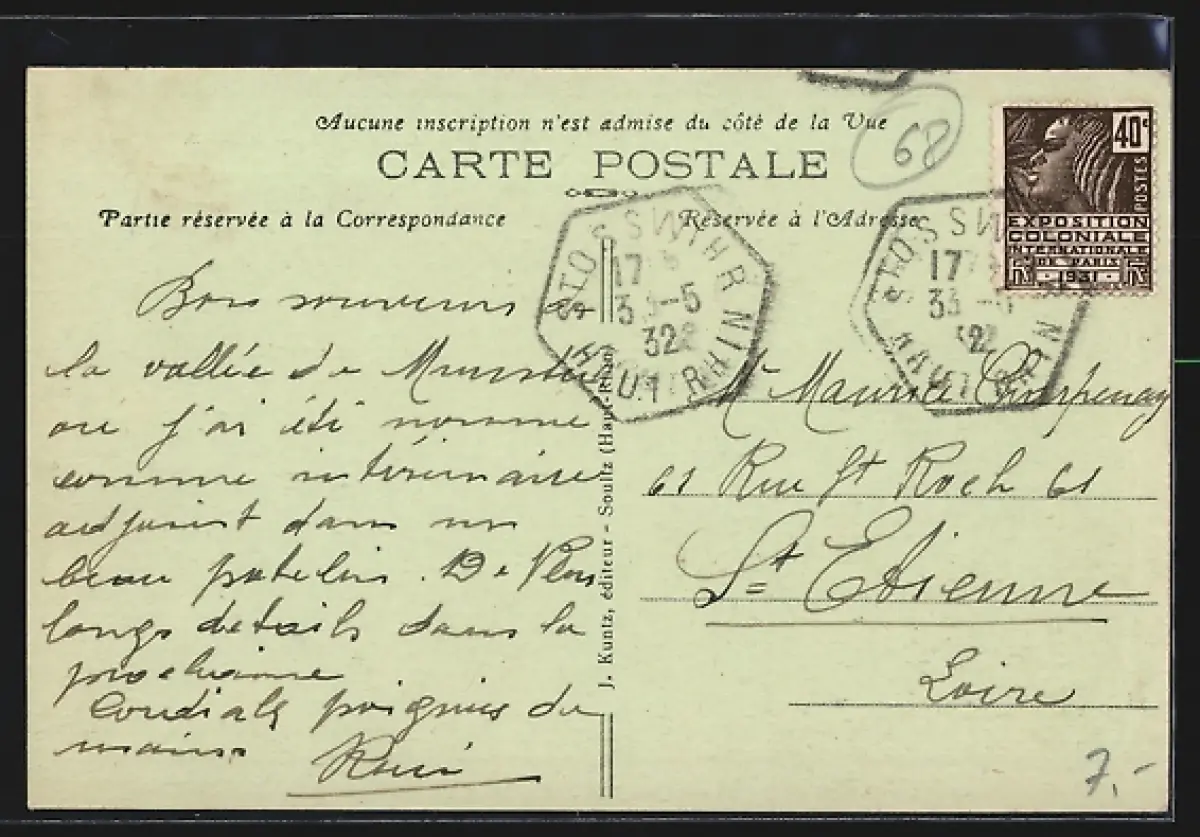 Aucune inscription n'est admise du côté de la Vue
CARTE POSTALE
68
Partie réservée à la Correspondance
Réservée à l'Adresse
40c
POSTES
EXPOSITION
COLONIALE
INTERNATIONALE
DE PARIS
1931
STOSSWIHR
HAUT RHIN
STOSSW
HAUT RHIN
Bons souvenirs de
la vallée de Munster
où j'ai été nommé
comme intérimaire
adjoint dans un
beau patelin. De Plus
longs details dans la
prochaine
Cordiales poignées de
mains
J. Kuntz, éditeur - Soultz (Haut-Rhin)
Mr Maurice
61 Rue St Roch 61
St Etienne
Loire
7,-